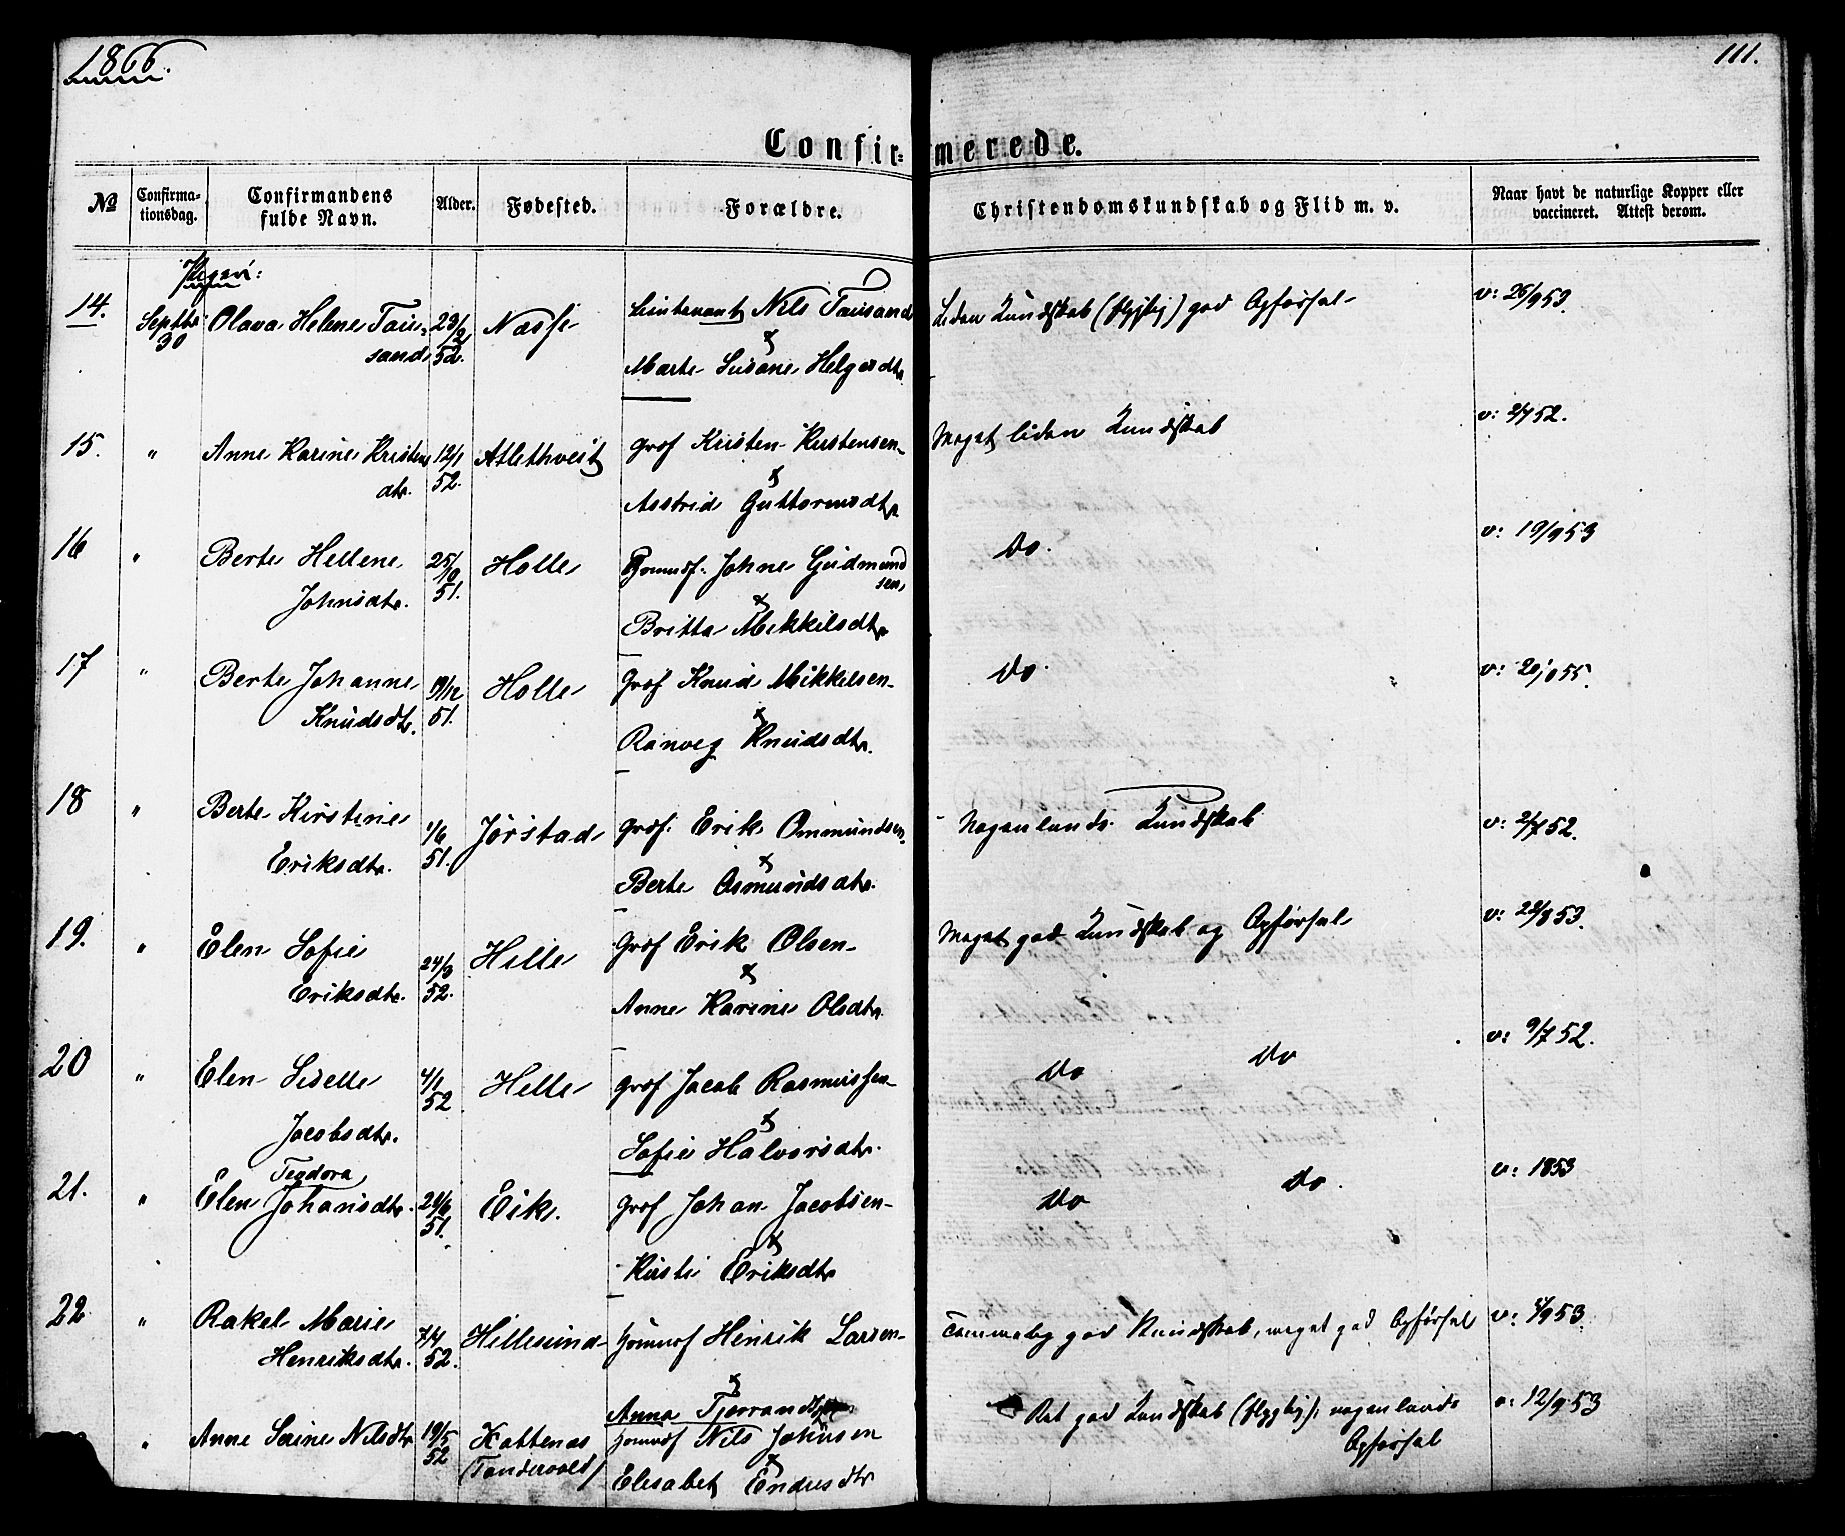 1866.
111.
Confirmerede.
No
Confirmationsdag.
Confirmandens fulde Navn.
Alder.
Fødested.
Forældre.
Christendomskundskab og Flid m. v.
Naar havt de naturlige Kopper eller vaccineret. Attest derom.
Piger:
14. Septbr 30 Olava Helene Tausand 52. Næsse Lieutenant Nils Tausand
Marte Susane Helgesdtr
Liden Kundskab god Opførsel v: 26/9 53.
15. " Anne Karine Kristensdtr. 12/1 52. Atlethveit Grdf Kristen Kristensen
Asstrid Guttormsdtr
Meget liden Kundskab v: 2/7 52.
16 " Berte Hellene Johnsdtr. 51. Holle Johne Gudmundsen
Britta Mikkilsdtr
Do. v: 19/9 53
17 " Berte Johanne Knudsdtr. 19/12 51. Holle Grdf Knud Mikkelsen
Ranveg Knudsdtr.
Do v:
18 " Berte Kirstine Eriksdtr. 1/6 51. Jørstad Grdf. Erik Ommundsen
Berte Osmundsdtr.
Nogenlunde Kundskab v: 2/7 52.
19. " Elen Sofie Eriksdtr. 24/3 52. Helle Grdf Erik Olsen
Anne Karine Olsdtr
Meget god Kundskab og Opførsel v: 28/8 53.
20 " Elen Sidelle Jacobsdtr. 4/1 52 Helle Grdf Jacob Rasmussen
Sofie Halvorsdtr.
Do Do v: 9/7 52.
21. " Elen Teodora Johansdtr. 24/6 51. Eik. Grdf Johan Jacobsen
Kirsti Eriksdtr
Do Do. v: 1853
22 " Rakel Marie Henriksdtr. 7/4 52. Hillesund Henrik Larsen
Anna Tjerrandsdtr
Temmelig god Kundskab, meget god Opførsel v: 53.
" Anne Serine Nilsdtr 19/5 52 Kattenæs (Tandervold) Nils Johnsen
Elisabet Endresdtr
Ret god Kundskab nogenlunde Opførsel v: 12/9 53